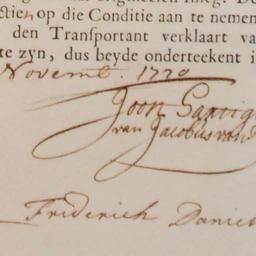 ctien op die Conditie aan te nemen
den Transportant verklaart va
te zyn, dus beyde onderteekent i
Novemb. 1720
Joon
van Jacobus van
Friderich Daniel